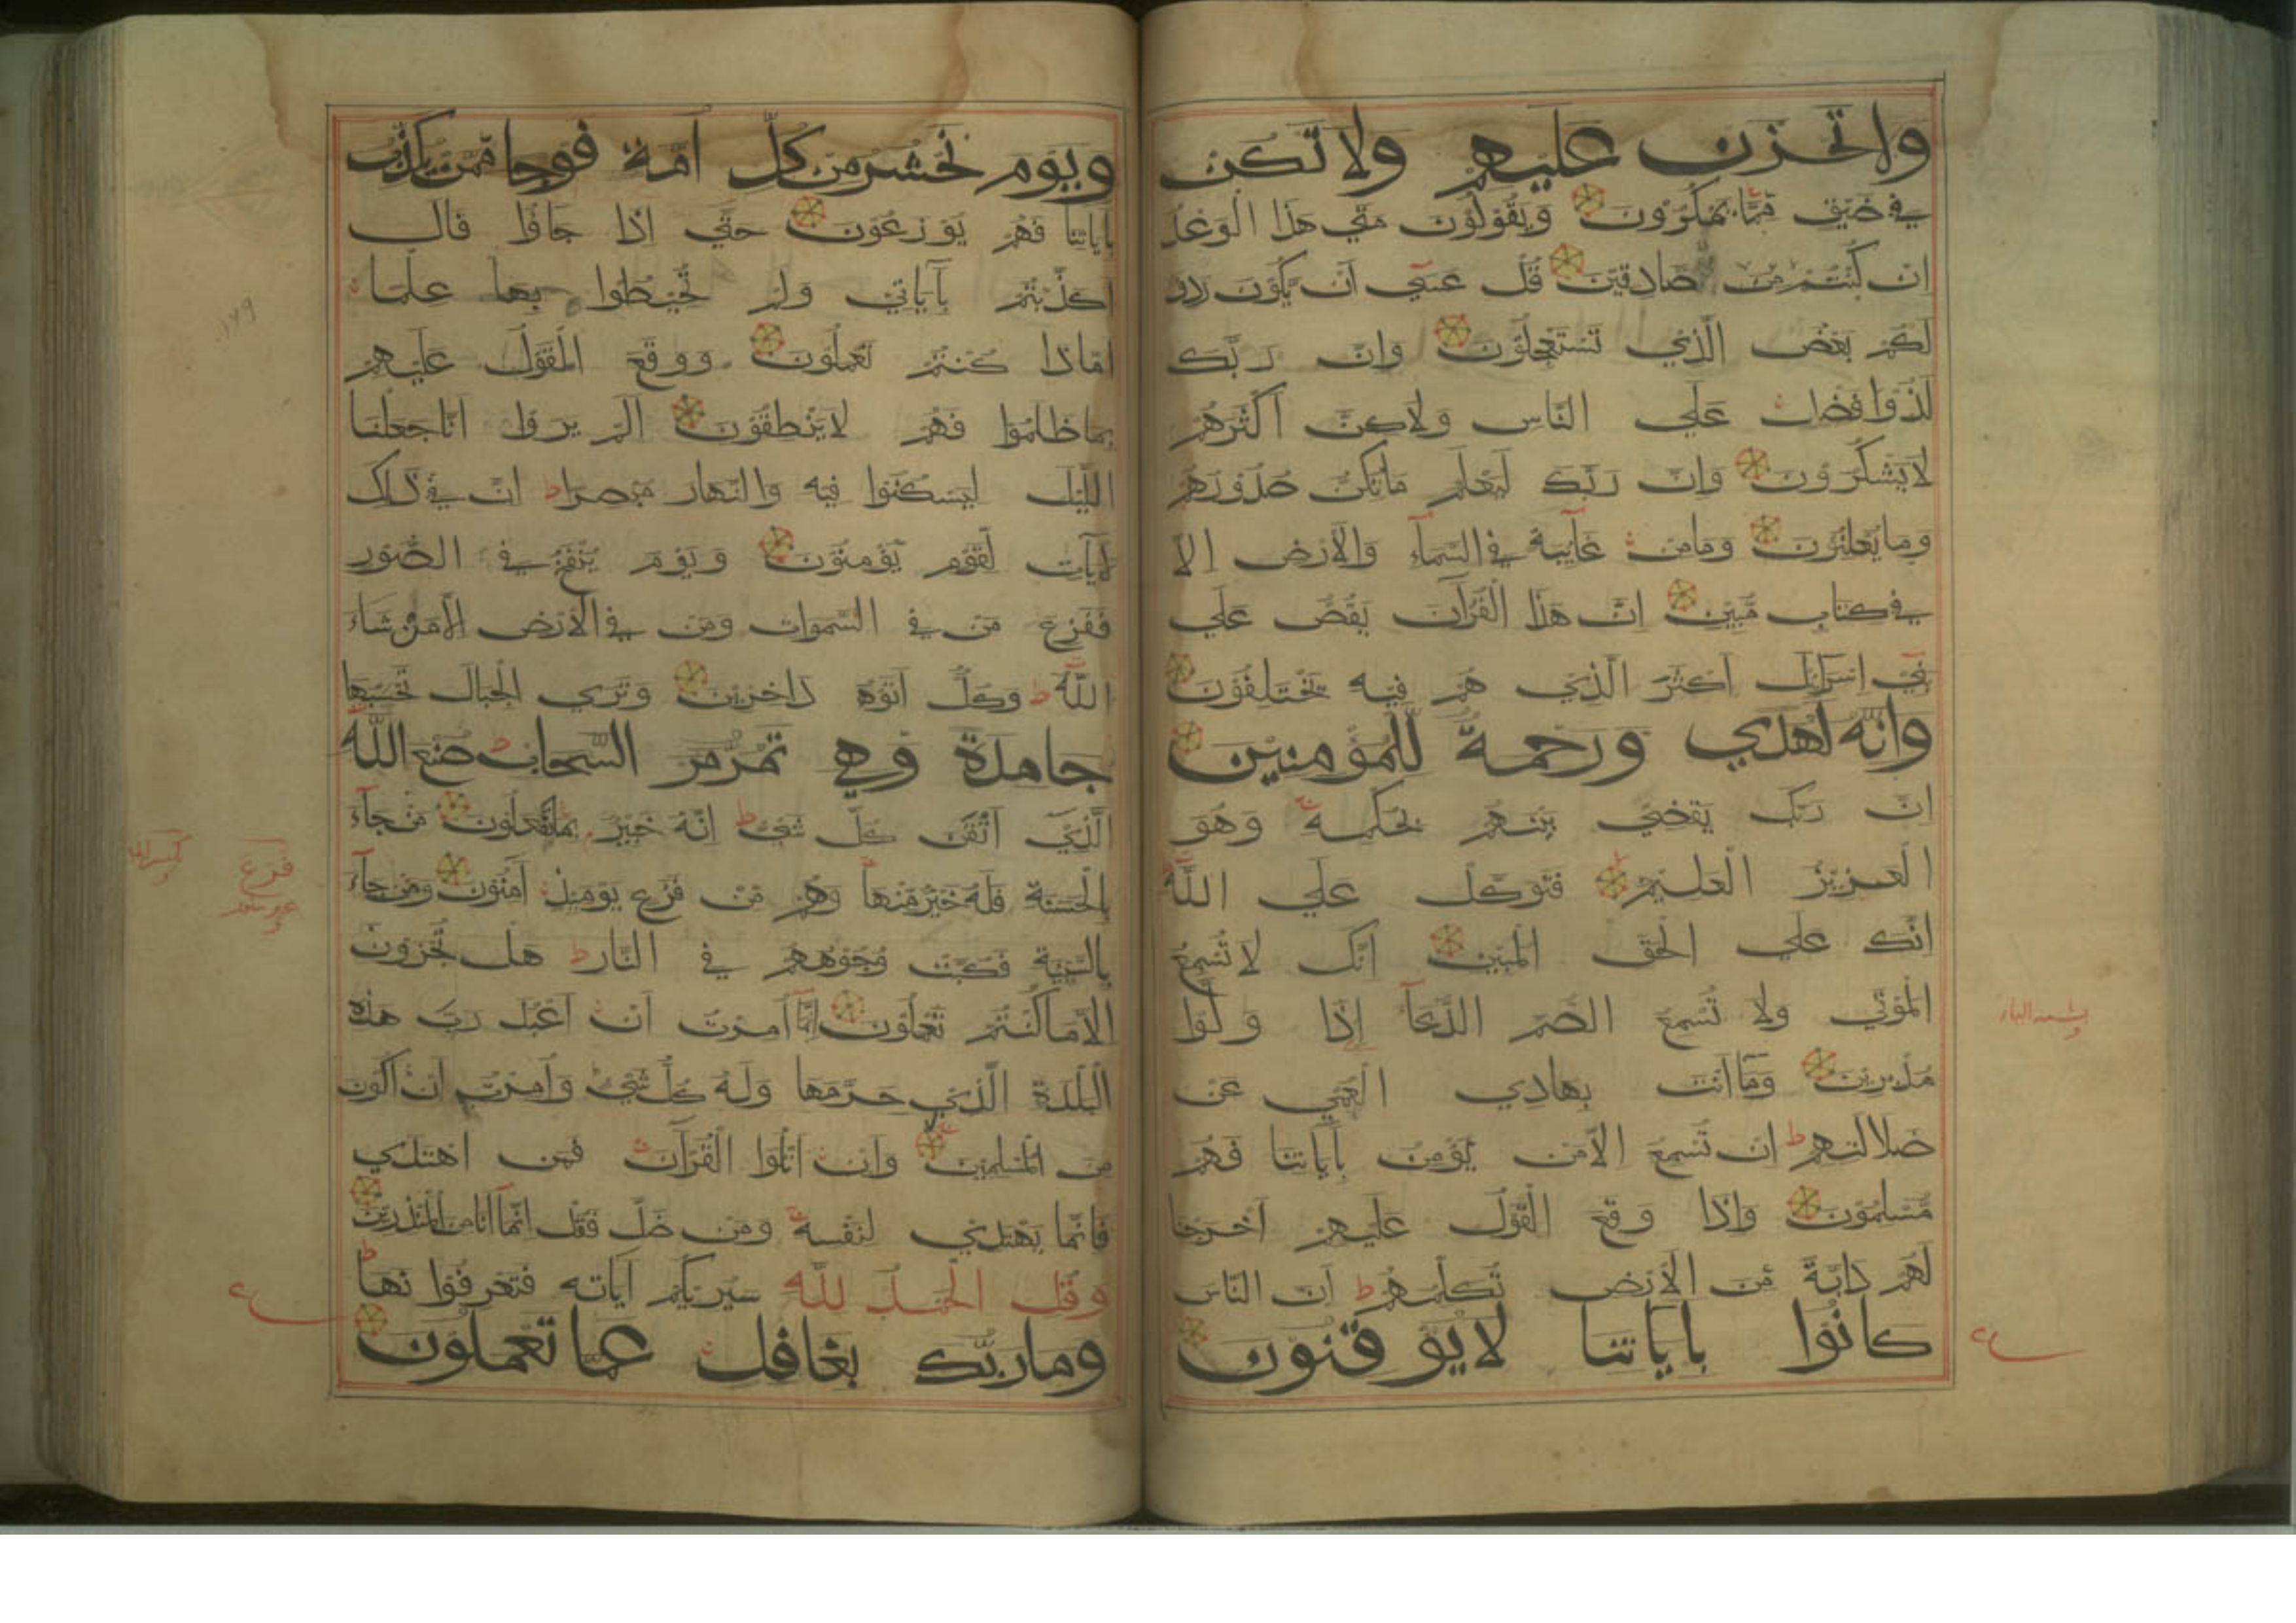 ولا تحزن عليهم ولا تكن
في ضيق مما يمكرون ويقولون متى هذا الوعد
ان كنتم من صادقين قل عسى أن يكون ردف
لكم بعض الذي تستعجلون وان ربك
لذوا فضل على الناس ولاكن أكثرهم
لا يشكرون وإن ربك ليعلم ما تكن صدورهم
وما يعلنون وما من غايبة في السماء والأرض الا
في كتاب مبين ان هذا القرآن يقص على
بني اسرايل أكثر الذي هم فيه يختلفون
وانه لهدي ورحمة للمؤمنين
ان ربك يقضي بينهم بحكمه وهو
العزيز العليم فتوكل على الله
انك على الحق المبين انك لا تسمع
الموتى ولا تسمع الصم الدعآ إذا ولوا
مدبرين وما أنت بهادي العمي عن
ضلالتهم ان تسمع الا من يؤمن بآياتنا فهم
مسلمون واذا وقع القول عليهم أخرجنا
لهم دابة من الأرض تكلمهم أن الناس
كانوا بآياتنا لا يوقنون
ويوم نحشر من كل أمة فوجا ممن يكذب
بآياتنا فهم يوزعون حتى اذا جاؤا قال
اكذبتم بآياتي ولم تحيطوا بها علما
اماذا كنتم تعملون ووقع القول عليهم
بما ظلموا فهم لا ينطقون الم يروا انا جعلنا
الليل ليسكنوا فيه والنهار مبصرا ان في ذلك
لآيات لقوم يؤمنون ويوم ينفخ في الصور
ففزع من في السموات ومن في الأرض الا من شاء
الله وكل أتوه داخرين وترى الجبال تحسبها
جامدة وهي تمر مر السحاب صنع الله
الذي أتقن كل شيء انه خبير بما تفعلون من جآء
بالحسنة فله خير منها وهم من فزع يوميذ آمنون ومن جآء
بالسيية فكبت وجوههم في النار هل تجزون
الا ما كنتم تعملون إنما أمرت أن أعبد رب هذه
البلدة الذي حرمها وله كل شيء وأمرت أن أكون
من المسلمين وان اتلوا القرآن فمن اهتدى
فانما يهتدي لنفسه ومن ضل فقل انما انا من المنذرين
وقل الحمد لله سيريكم آياته فتعرفونها
وما ربك بغافل عما تعملون
١٧٩
فزع